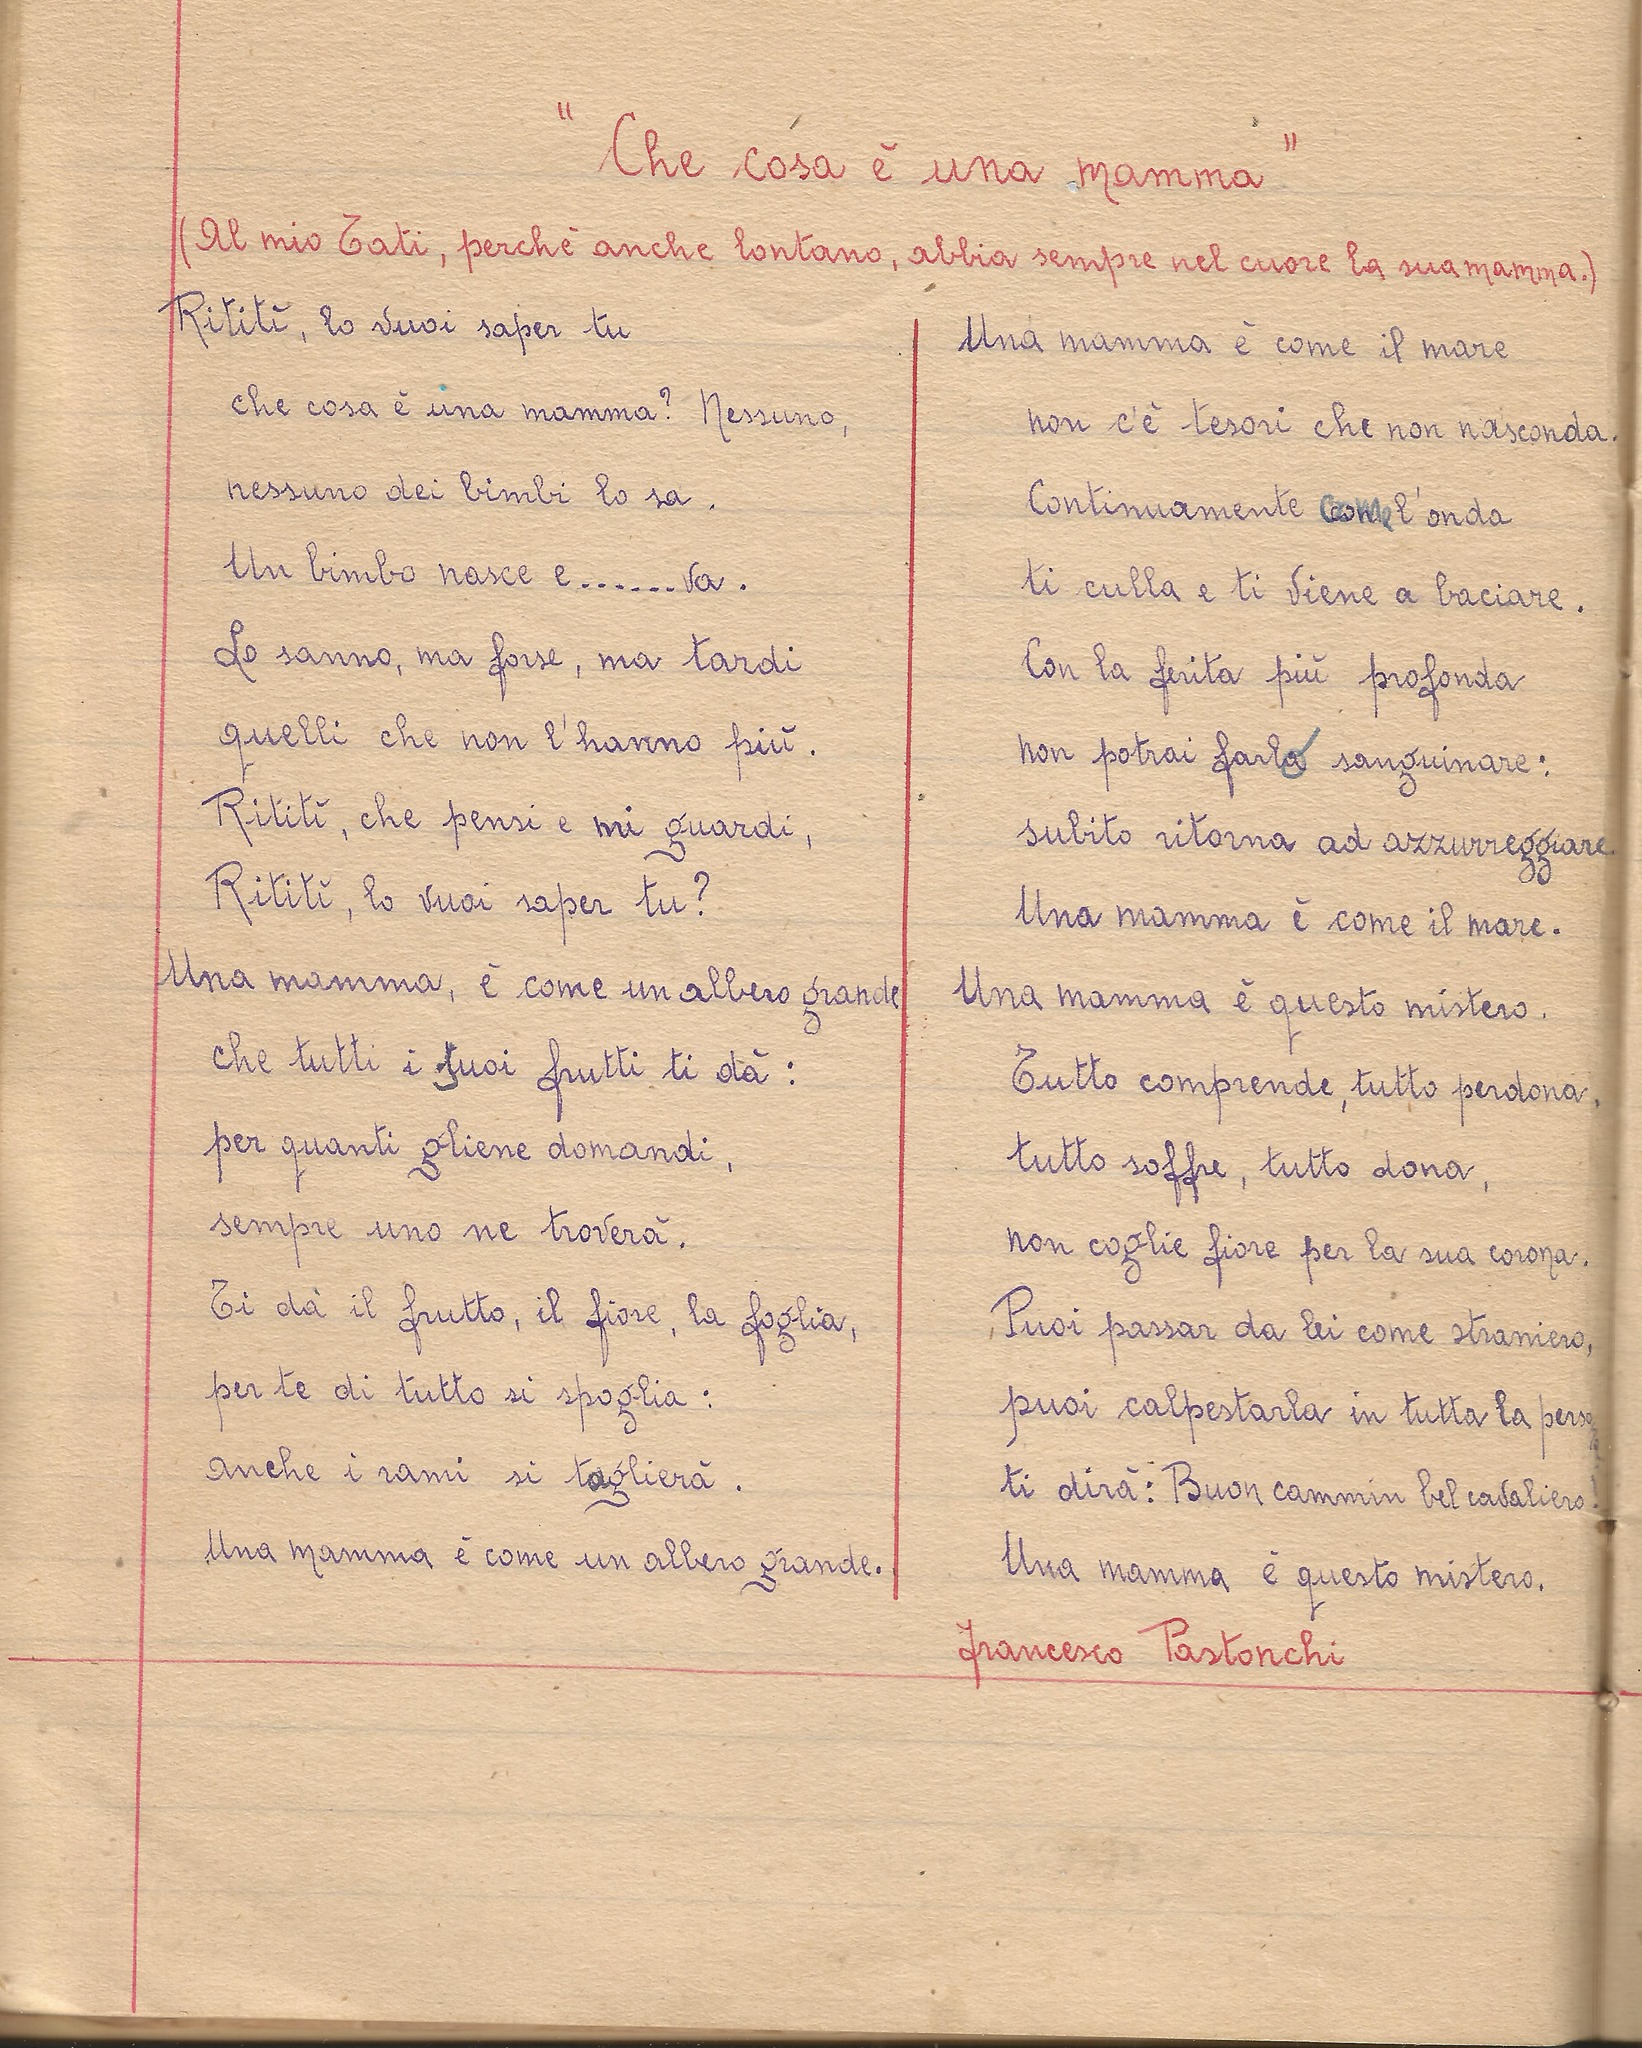 "Che cosa è una mamma"
(Al mio Tati, perchè anche lontano, abbia sempre nel cuore la sua mamma.)
Rititì, lo vuoi saper tu
che cosa è una mamma? Nessuno,
nessuno dei bimbi lo sa.
Un bimbo nasce e.......va.
Lo sanno, ma forse, ma tardi
quelli che non l'hanno più.
Rititì, che pensi e mi guardi,
Rititì, lo vuoi saper tu?
Una mamma, è come un albero grande
che tutti i suoi frutti ti dà:
per quanti gliene domandi,
sempre uno ne troverà.
Ti dà il frutto, il fiore, la foglia,
per te di tutto si spoglia:
anche i rami si taglierà.
Una mamma è come un albero grande.
Una mamma è come il mare
non c'è tesori che non nasconda.
Continuamente come l'onda
ti culla e ti viene a baciare.
Con la ferita più profonda
non potrai farla sanguinare:
subito ritorna ad azzurreggiare.
Una mamma è come il mare.
Una mamma è questo mistero.
Tutto comprende, tutto perdona,
tutto soffre, tutto dona,
non coglie fiore per la sua corona.
Puoi passar da lei come straniero,
puoi calpestarla in tutta la
ti dirà: Buon cammin bel cavaliero!
Una mamma è questo mistero.
Francesco Pastonchi